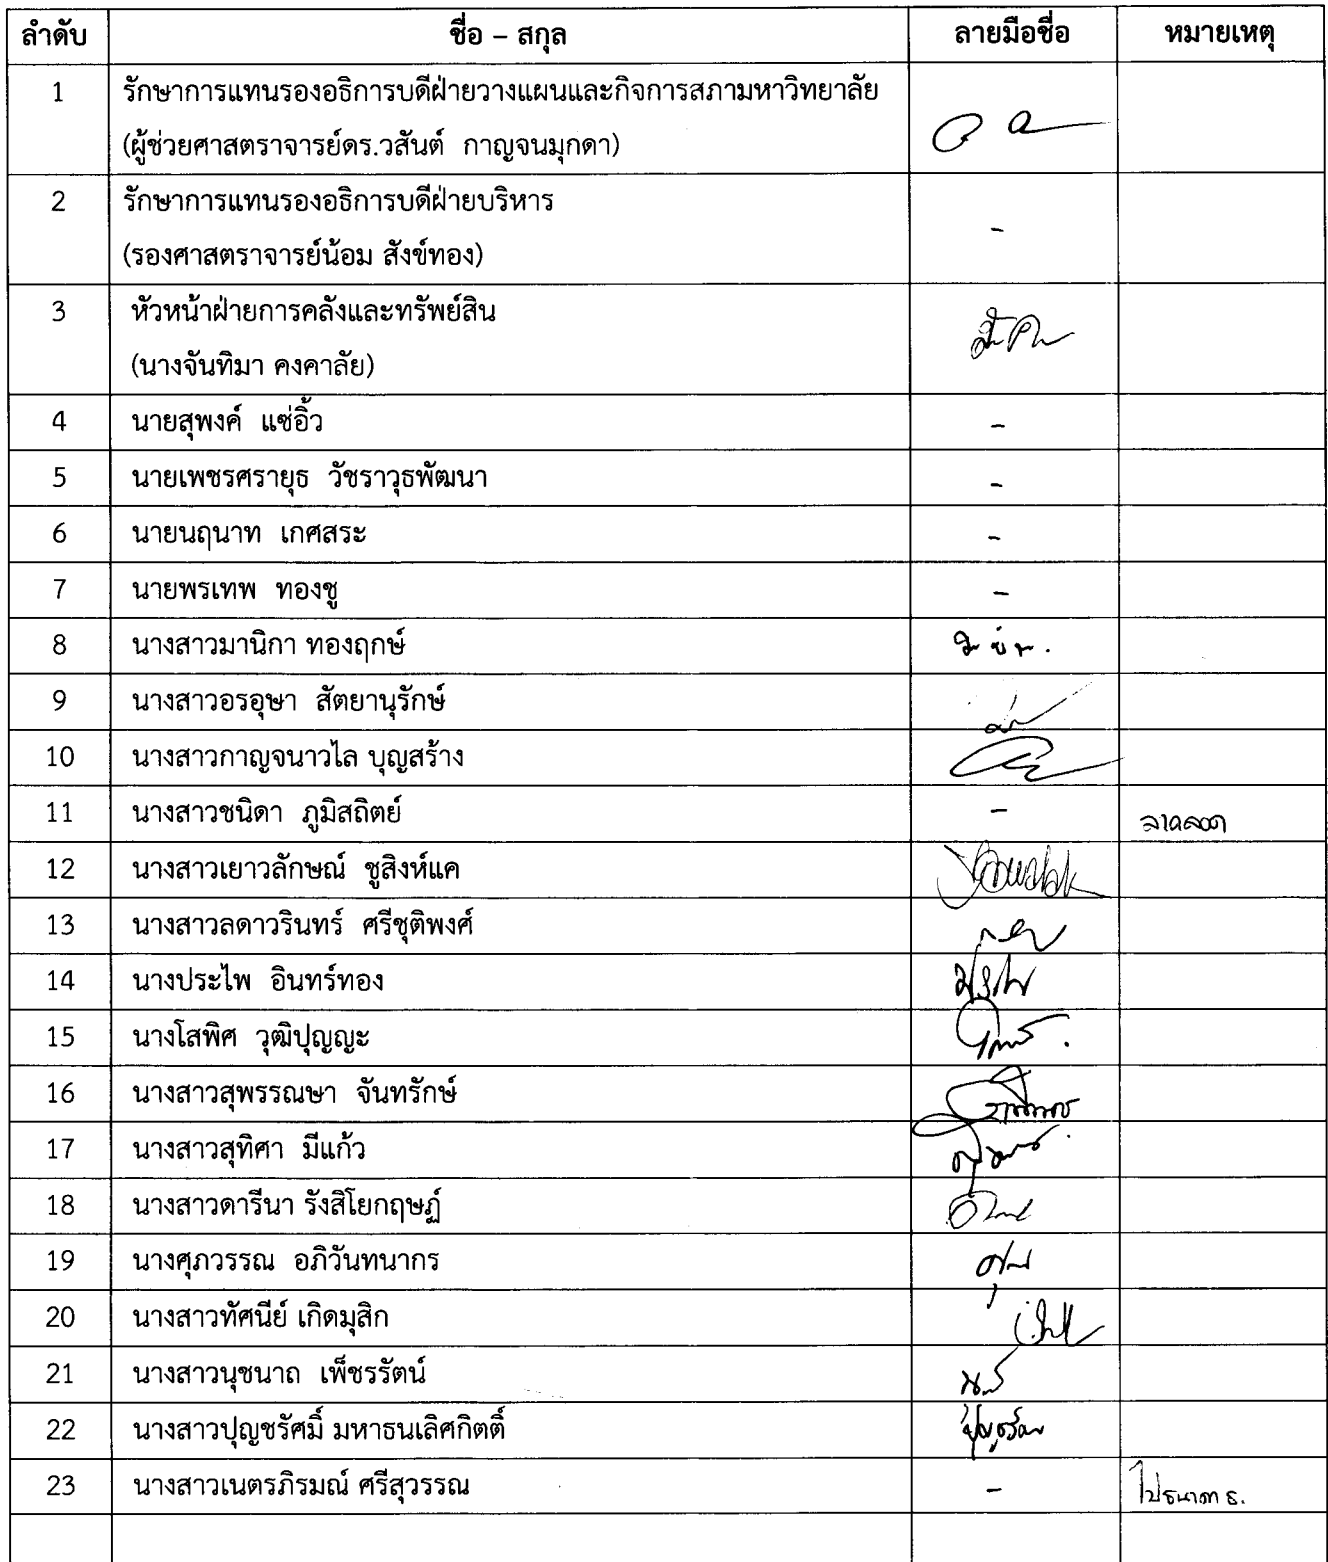 ลำดับ ชื่อ – สกุล ลายมือชื่อ หมายเหตุ
1 รักษาการแทนรองอธิการบดีฝ่ายวางแผนและกิจการสภามหาวิทยาลัย
(ผู้ช่วยศาสตราจารย์ดร.วสันต์ กาญจนมุกดา)
2 รักษาการแทนรองอธิการบดีฝ่ายบริหาร
(รองศาสตราจารย์น้อม สังข์ทอง) -
3 หัวหน้าฝ่ายการคลังและทรัพย์สิน
(นางจันทิมา คงคาลัย)
4 นายสุพงค์ แซ่อิ้ว -
5 นายเพชรศรายุธ วัชราวุธพัฒนา -
6 นายนฤนาท เกศสระ -
7 นายพรเทพ ทองชู -
8 นางสาวมานิกา ทองฤกษ์
9 นางสาวอรอุษา สัตยานุรักษ์
10 นางสาวกาญจนาวไล บุญสร้าง
11 นางสาวชนิดา ภูมิสถิตย์ - ลาคลอด
12 นางสาวเยาวลักษณ์ ชูสิงห์แค
13 นางสาวลดาวรินทร์ ศรีชุติพงศ์
14 นางประไพ อินทร์ทอง
15 นางโสพิศ วุฒิปุญญะ
16 นางสาวสุพรรณษา จันทรักษ์
17 นางสาวสุทิศา มีแก้ว
18 นางสาวดารีนา รังสิโยกฤษฏ์
19 นางศุภวรรณ อภิวันทนากร
20 นางสาวทัศนีย์ เกิดมุสิก
21 นางสาวนุชนาถ เพ็ชรรัตน์
22 นางสาวปุญชรัศมิ์ มหาธนเลิศกิตติ์
23 นางสาวเนตรภิรมณ์ ศรีสุวรรณ - ไปธนาคาร.